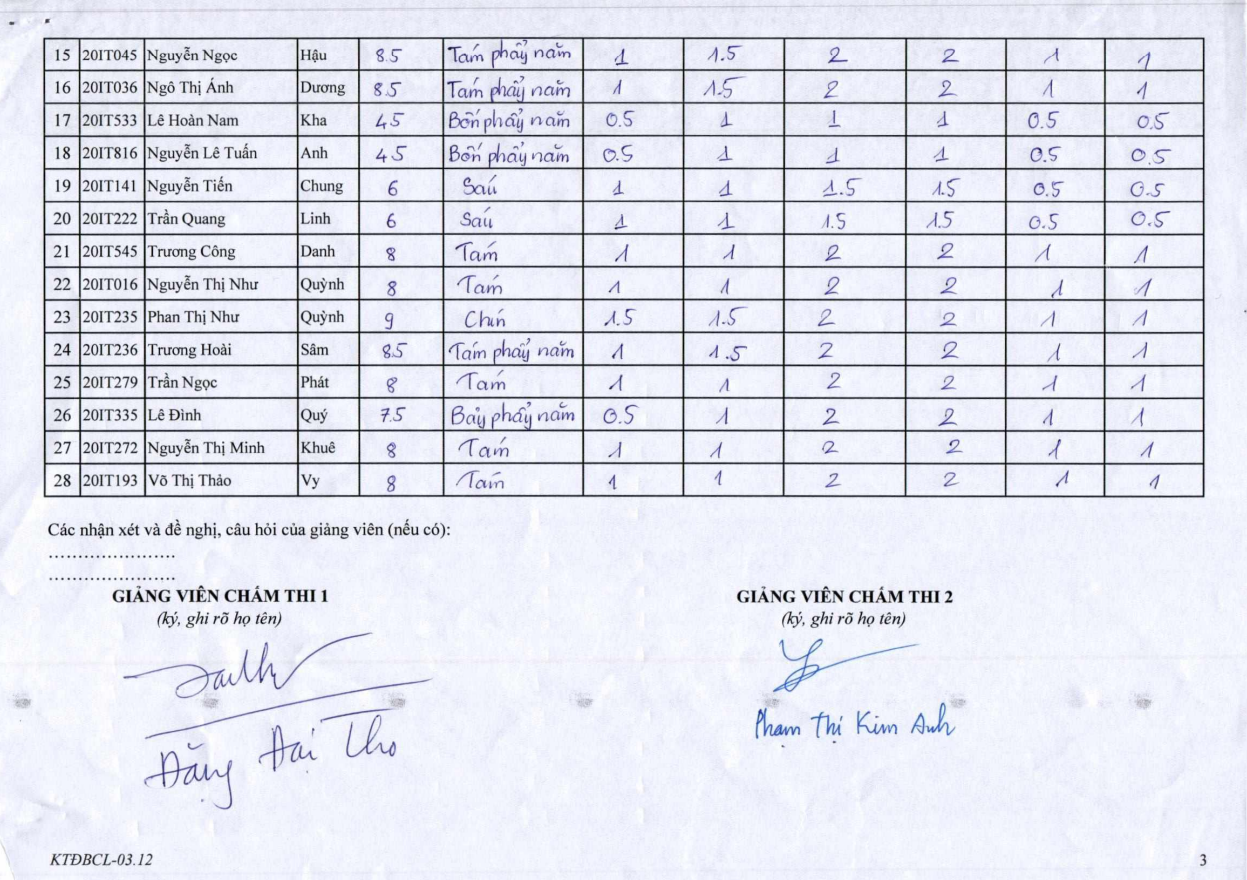 15 20IT045 Nguyễn Ngọc Hậu 8.5 Tám phẩy năm 1 1.5 2 2 1 1
16 20IT036 Ngô Thị Ánh Dương 8.5 Tám phẩy năm 1 1.5 2 2 1 1
17 20IT533 Lê Hoàn Nam Kha 4.5 Bốn phẩy năm 0.5 1 1 1 0.5 0.5
18 20IT816 Nguyễn Lê Tuấn Anh 4.5 Bốn phẩy năm 0.5 1 1 1 0.5 0.5
19 20IT141 Nguyễn Tiến Chung 6 Sáu 1 1 1.5 1.5 0.5 0.5
20 20IT222 Trần Quang Linh 6 Sáu 1 1 1.5 1.5 0.5 0.5
21 20IT545 Trương Công Danh 8 Tám 1 1 2 2 1 1
22 20IT016 Nguyễn Thị Như Quỳnh 8 Tám 1 1 2 2 1 1
23 20IT235 Phan Thị Như Quỳnh 9 Chín 1.5 1.5 2 2 1 1
24 20IT236 Trương Hoài Sâm 8.5 Tám phẩy năm 1 1.5 2 2 1 1
25 20IT279 Trần Ngọc Phát 8 Tám 1 1 2 2 1 1
26 20IT335 Lê Đình Quý 7.5 Bảy phẩy năm 0.5 1 2 2 1 1
27 20IT272 Nguyễn Thị Minh Khuê 8 Tám 1 1 2 2 1 1
28 20IT193 Võ Thị Thảo Vy 8 Tám 1 1 2 2 1 1
Các nhận xét và đề nghị, câu hỏi của giảng viên (nếu có):
......................
......................
GIẢNG VIÊN CHẤM THI 1 GIẢNG VIÊN CHẤM THI 2
(ký, ghi rõ họ tên) (ký, ghi rõ họ tên)
Đặng Đại Thọ Phạm Thị Kim Anh
KTĐBCL-03.12 3